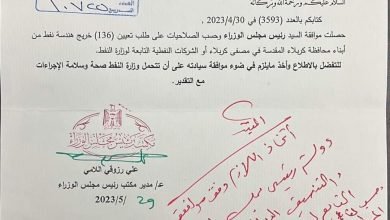 السلام عليكم ورحمة الله وبركاته
كتابكم بالعدد (3593) في 2023/4/30 .
حصلت موافقة السيد رئيس مجلس الوزراء وحسب الصلاحيات على طلب تعيين (136) خريج هندسة نفط من
أبناء محافظة كربلاء المقدسة في مصفى كربلاء أو الشركات النفطية التابعة لوزارة النفط.
للتفضل بالاطلاع وأخذ مايلزم في ضوء موافقة سيادته على أن تتحمل وزارة النفط صحة وسلامة الإجراءات
مع التقدير.
اتخاذ اللازم وفق موافقة
دولة رئيس
مكتب رئيس مجلس الوزراء
علي رزوقي اللامي
ع/ مدير مكتب رئيس مجلس الوزراء
2023/5/ 29